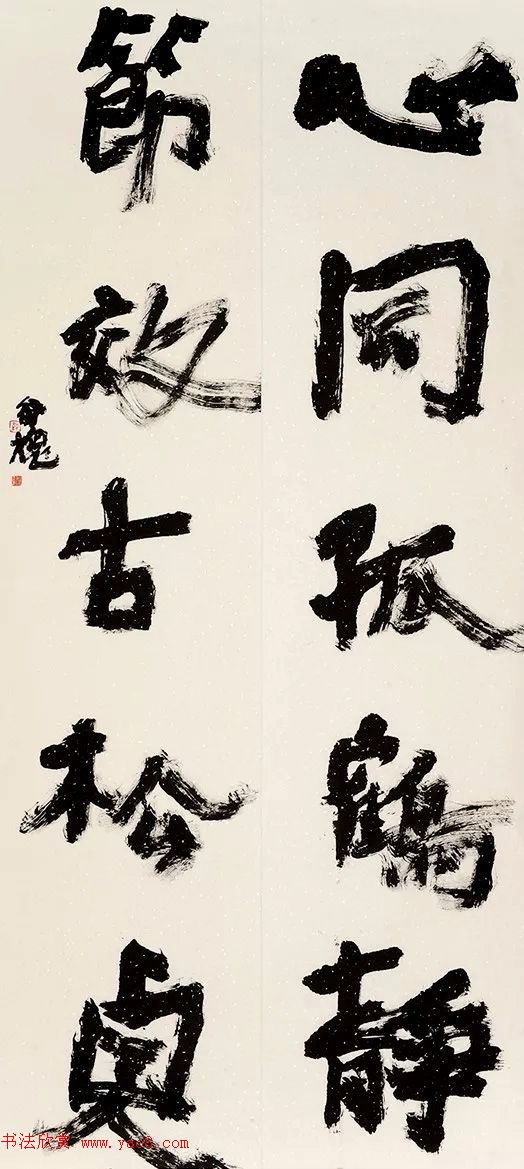 心同孤鶴靜
節效古松貞
書法欣賞 www.yac8.com